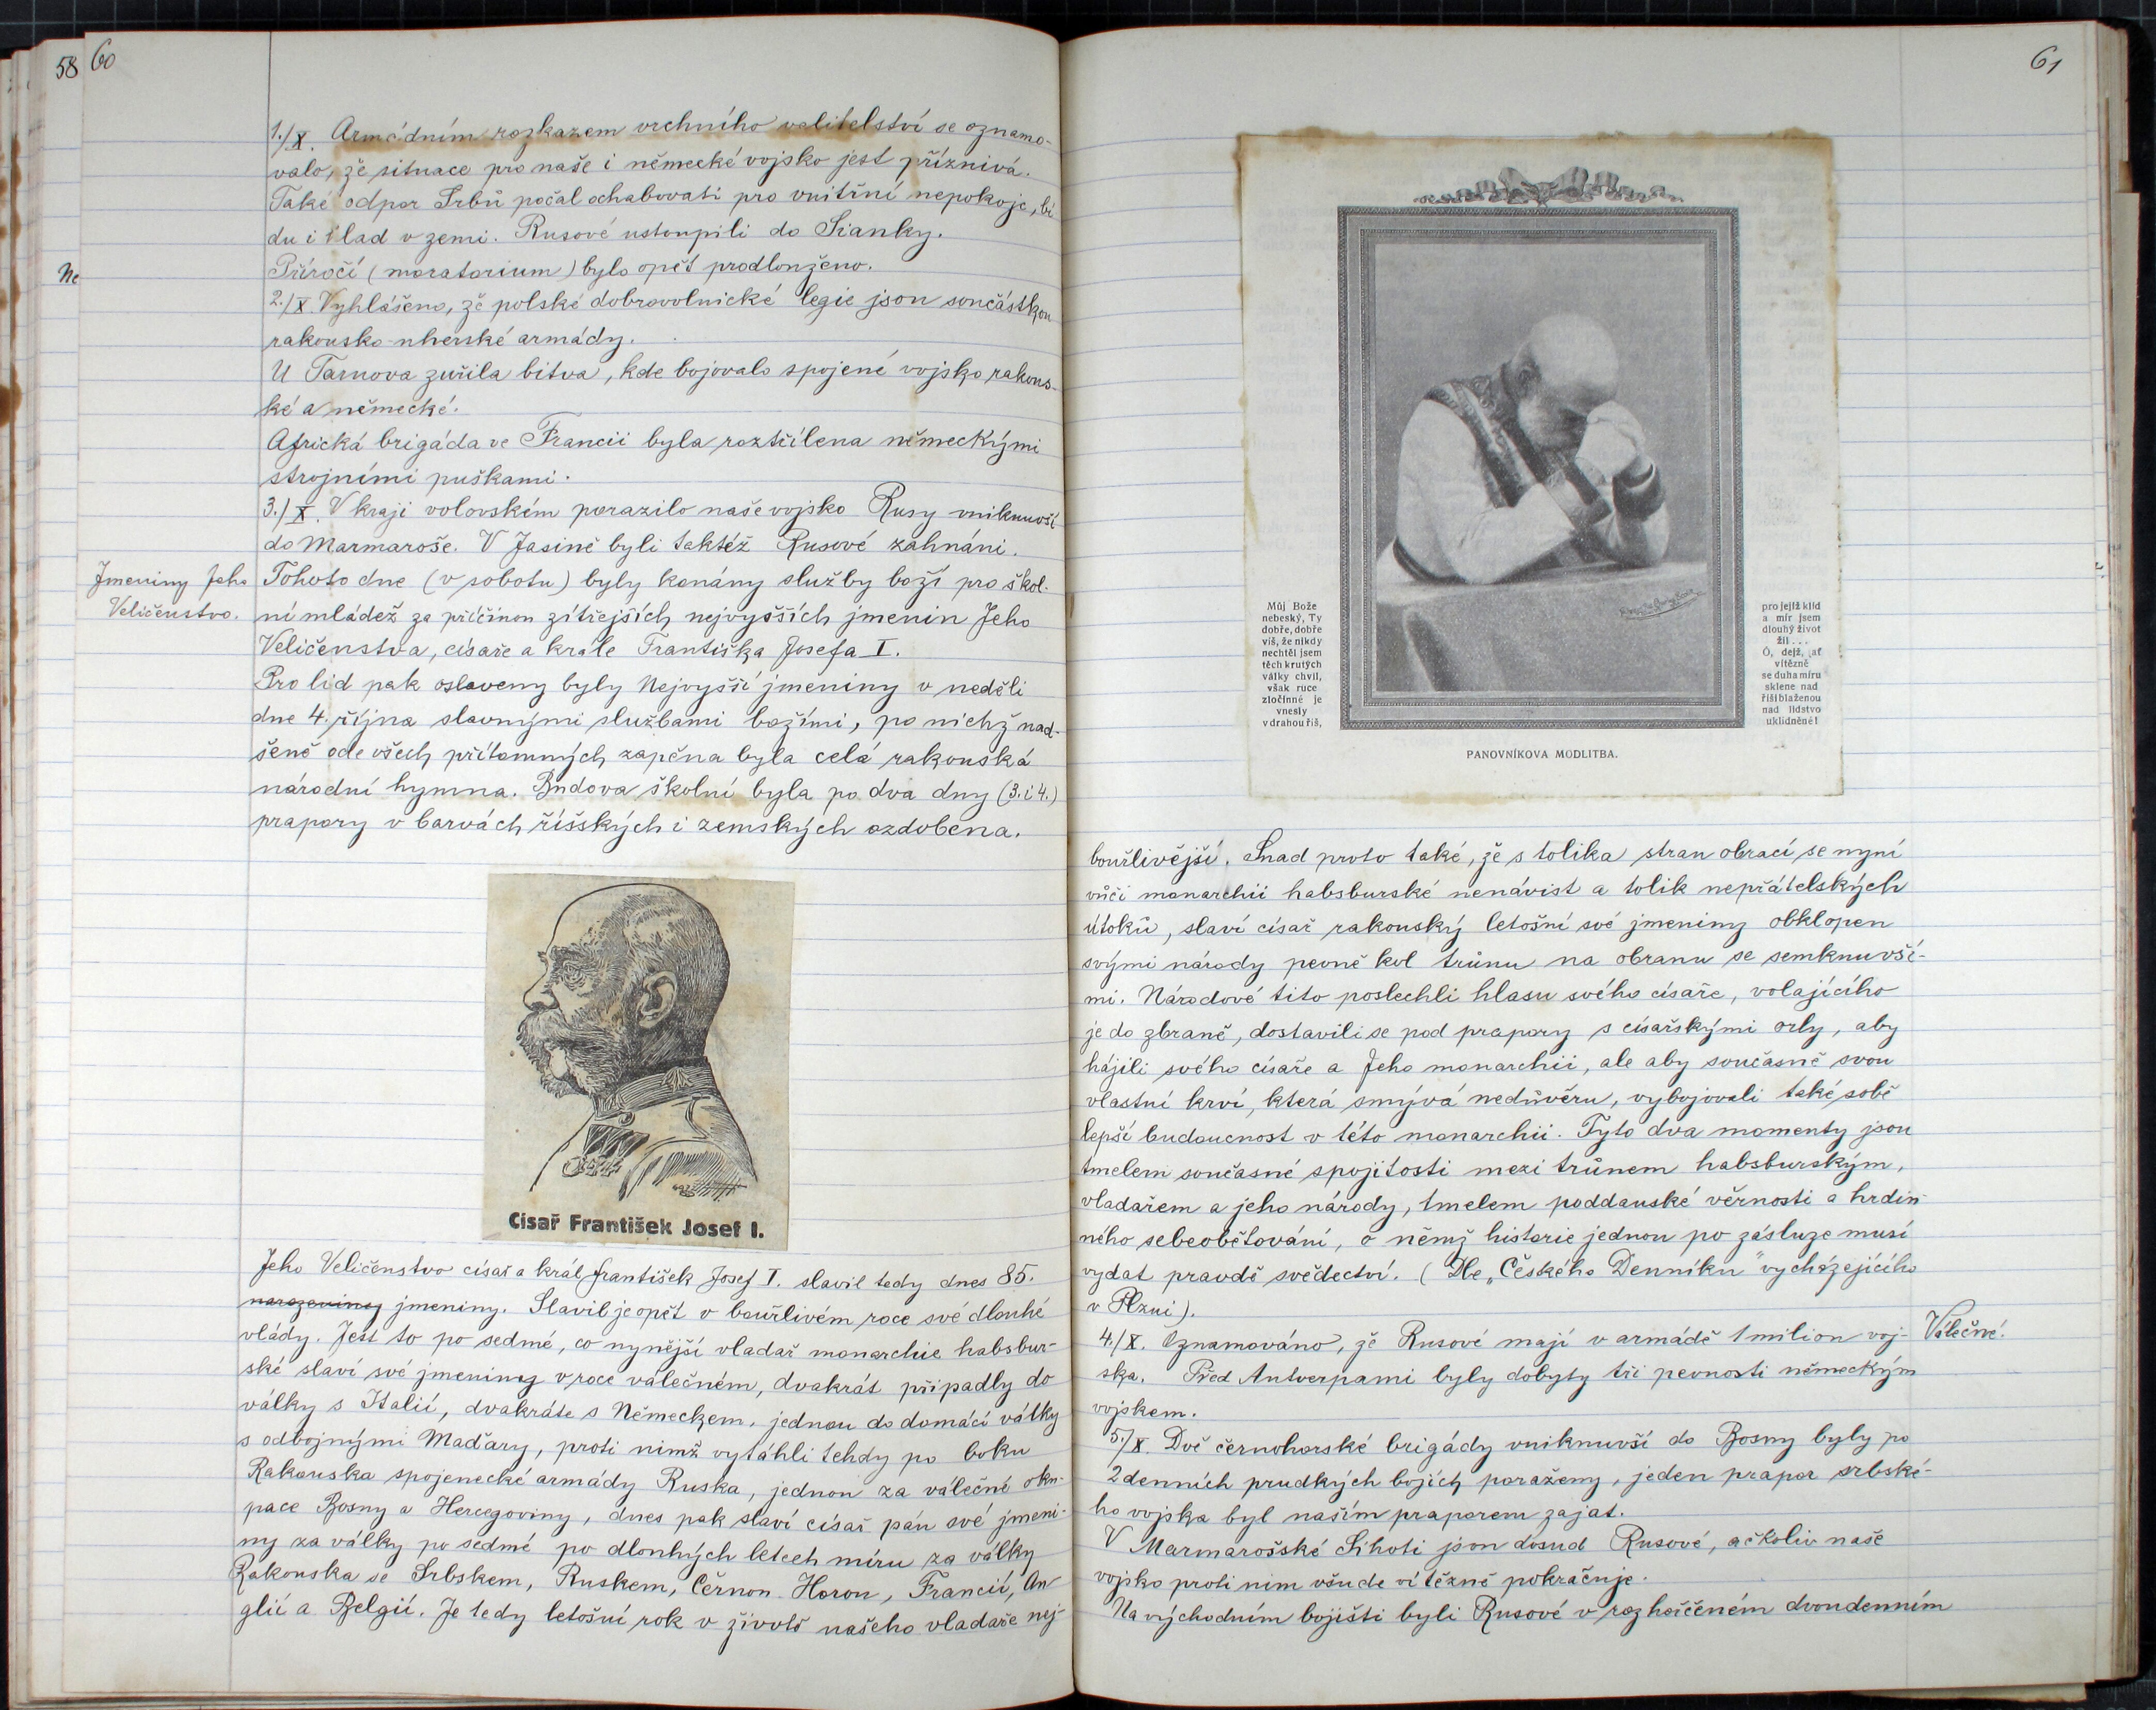 58
60
Ne
1./X. Armádním rozkazem vrchního velitelství se oznamo-
valo, že situace pro naše i německé vojsko jest příznivá.
Také odpor Srbů počal ochabovati pro vnitřní nepokoje, bí
du i hlad v zemi. Rusové ustoupili do Sianky.
Příročí (moratorium) bylo opět prodlouženo.
2./X. Vyhlášeno, že polské dobrovolnické legie jsou součástkou
rakousko-uherské armády.
U Tarnova zuřila bitva, kde bojovalo spojené vojsko rakous-
ké a německé.
Africká brigáda ve Francii byla roztřílena německými
strojními puškami.
3./X. V kraji volovském porazilo naše vojsko Rusy vniknuvší
do Marmaroše. V Jasině byli taktéž Rusové zahnáni.
Jmeniny Jeho
Veličenstva.
Tohoto dne (v sobotu) byly konány služby boží pro škol-
ní mládež za příčinou zítřejších nejvyšších jmenin Jeho
Veličenstva, císaře a krále Františka Josefa I.
Pro lid pak oslaveny byly Nejvyšší jmeniny v neděli
dne 4. října slavnými službami božími, po nichž nad-
šeně ode všech přítomných zapěna byla celá rakouská
národní hymna. Budova školní byla po dva dny (3. i 4.)
prapory v barvách říšských i zemských ozdobena.
Císař František Josef I.
Jeho Veličenstvo císař a král František Josef I. slavil tedy dnes 85.
narozeniny jmeniny. Slavil je opět v bouřlivém roce své dlouhé
vlády. Jest to po sedmé, co nynější vladař monarchie habsbur-
ské slaví své jmeniny v roce válečném, dvakrát připadly do
války s Italií, dvakráte s Německem, jednou do domácí války
s odbojnými Maďary, proti nimž vytáhli tehdy po boku
Rakouska spojenecké armády Ruska, jednou za válečné oku-
pace Bosny a Hercegoviny, dnes pak slaví císař pán své jmeni-
ny za války po sedmé po dlouhých letech míru za války
Rakouska se Srbskem, Ruskem, Černou Horou, Francií, An
glií a Belgií. Je tedy letošní rok v životě našeho vladaře nej-
61
Můj Bože
nebeský, Ty
dobře, dobře
víš, že nikdy
nechtěl jsem
těch krutých
války chvil,
však ruce
zločinné je
vnesly
v drahou říš,
pro jejíž klid
a mír jsem
dlouhý život
žil . . .
Ó, dejž, ať
vítězně
se duha míru
sklene nad
říší blaženou
nad lidstvo
uklidněné!
PANOVNÍKOVA MODLITBA.
bouřlivější. Snad proto také, že s tolika stran obrací se nyní
vůči monarchii habsburské nenávist a tolik nepřátelských
útoků, slaví císař rakouský letošní své jmeniny obklopen
svými národy pevně kol trůnu na obranu se semknuvší-
mi. Národové tito poslechli hlasu svého císaře, volajícího
je do zbraně, dostavili se pod prapory s císařskými orly, aby
hájili svého císaře a Jeho monarchii, ale aby současně svou
vlastní krví, která smývá nedůvěru, vybojovali také sobě
lepší budoucnost v této monarchii. Tyto dva momenty jsou
tmelem současné spojitosti mezi trůnem habsburským,
vladařem a jeho národy, tmelem poddanské věrnosti a hrdin-
ného sebeobětování, o němž historie jednou po zásluze musí
vydat pravdě svědectví. (Dle „Českého Denníku" vycházejícího
v Plzni).
4./X. Oznamováno, že Rusové mají v armádě 1 milion voj-
Válečné.
ska. Před Antverpami byly dobyty tři pevnosti německým
vojskem.
5./X. Dvě černohorské brigády vniknuvší do Bosny byly po
2denních prudkých bojích poraženy, jeden prapor srbské-
ho vojska byl naším praporem zajat.
V Marmarošské Sihoti jsou dosud Rusové, ačkoliv naše
vojsko proti nim všude vítězně pokračuje.
Na východním bojišti byli Rusové v rozhořčeném dvoudenním